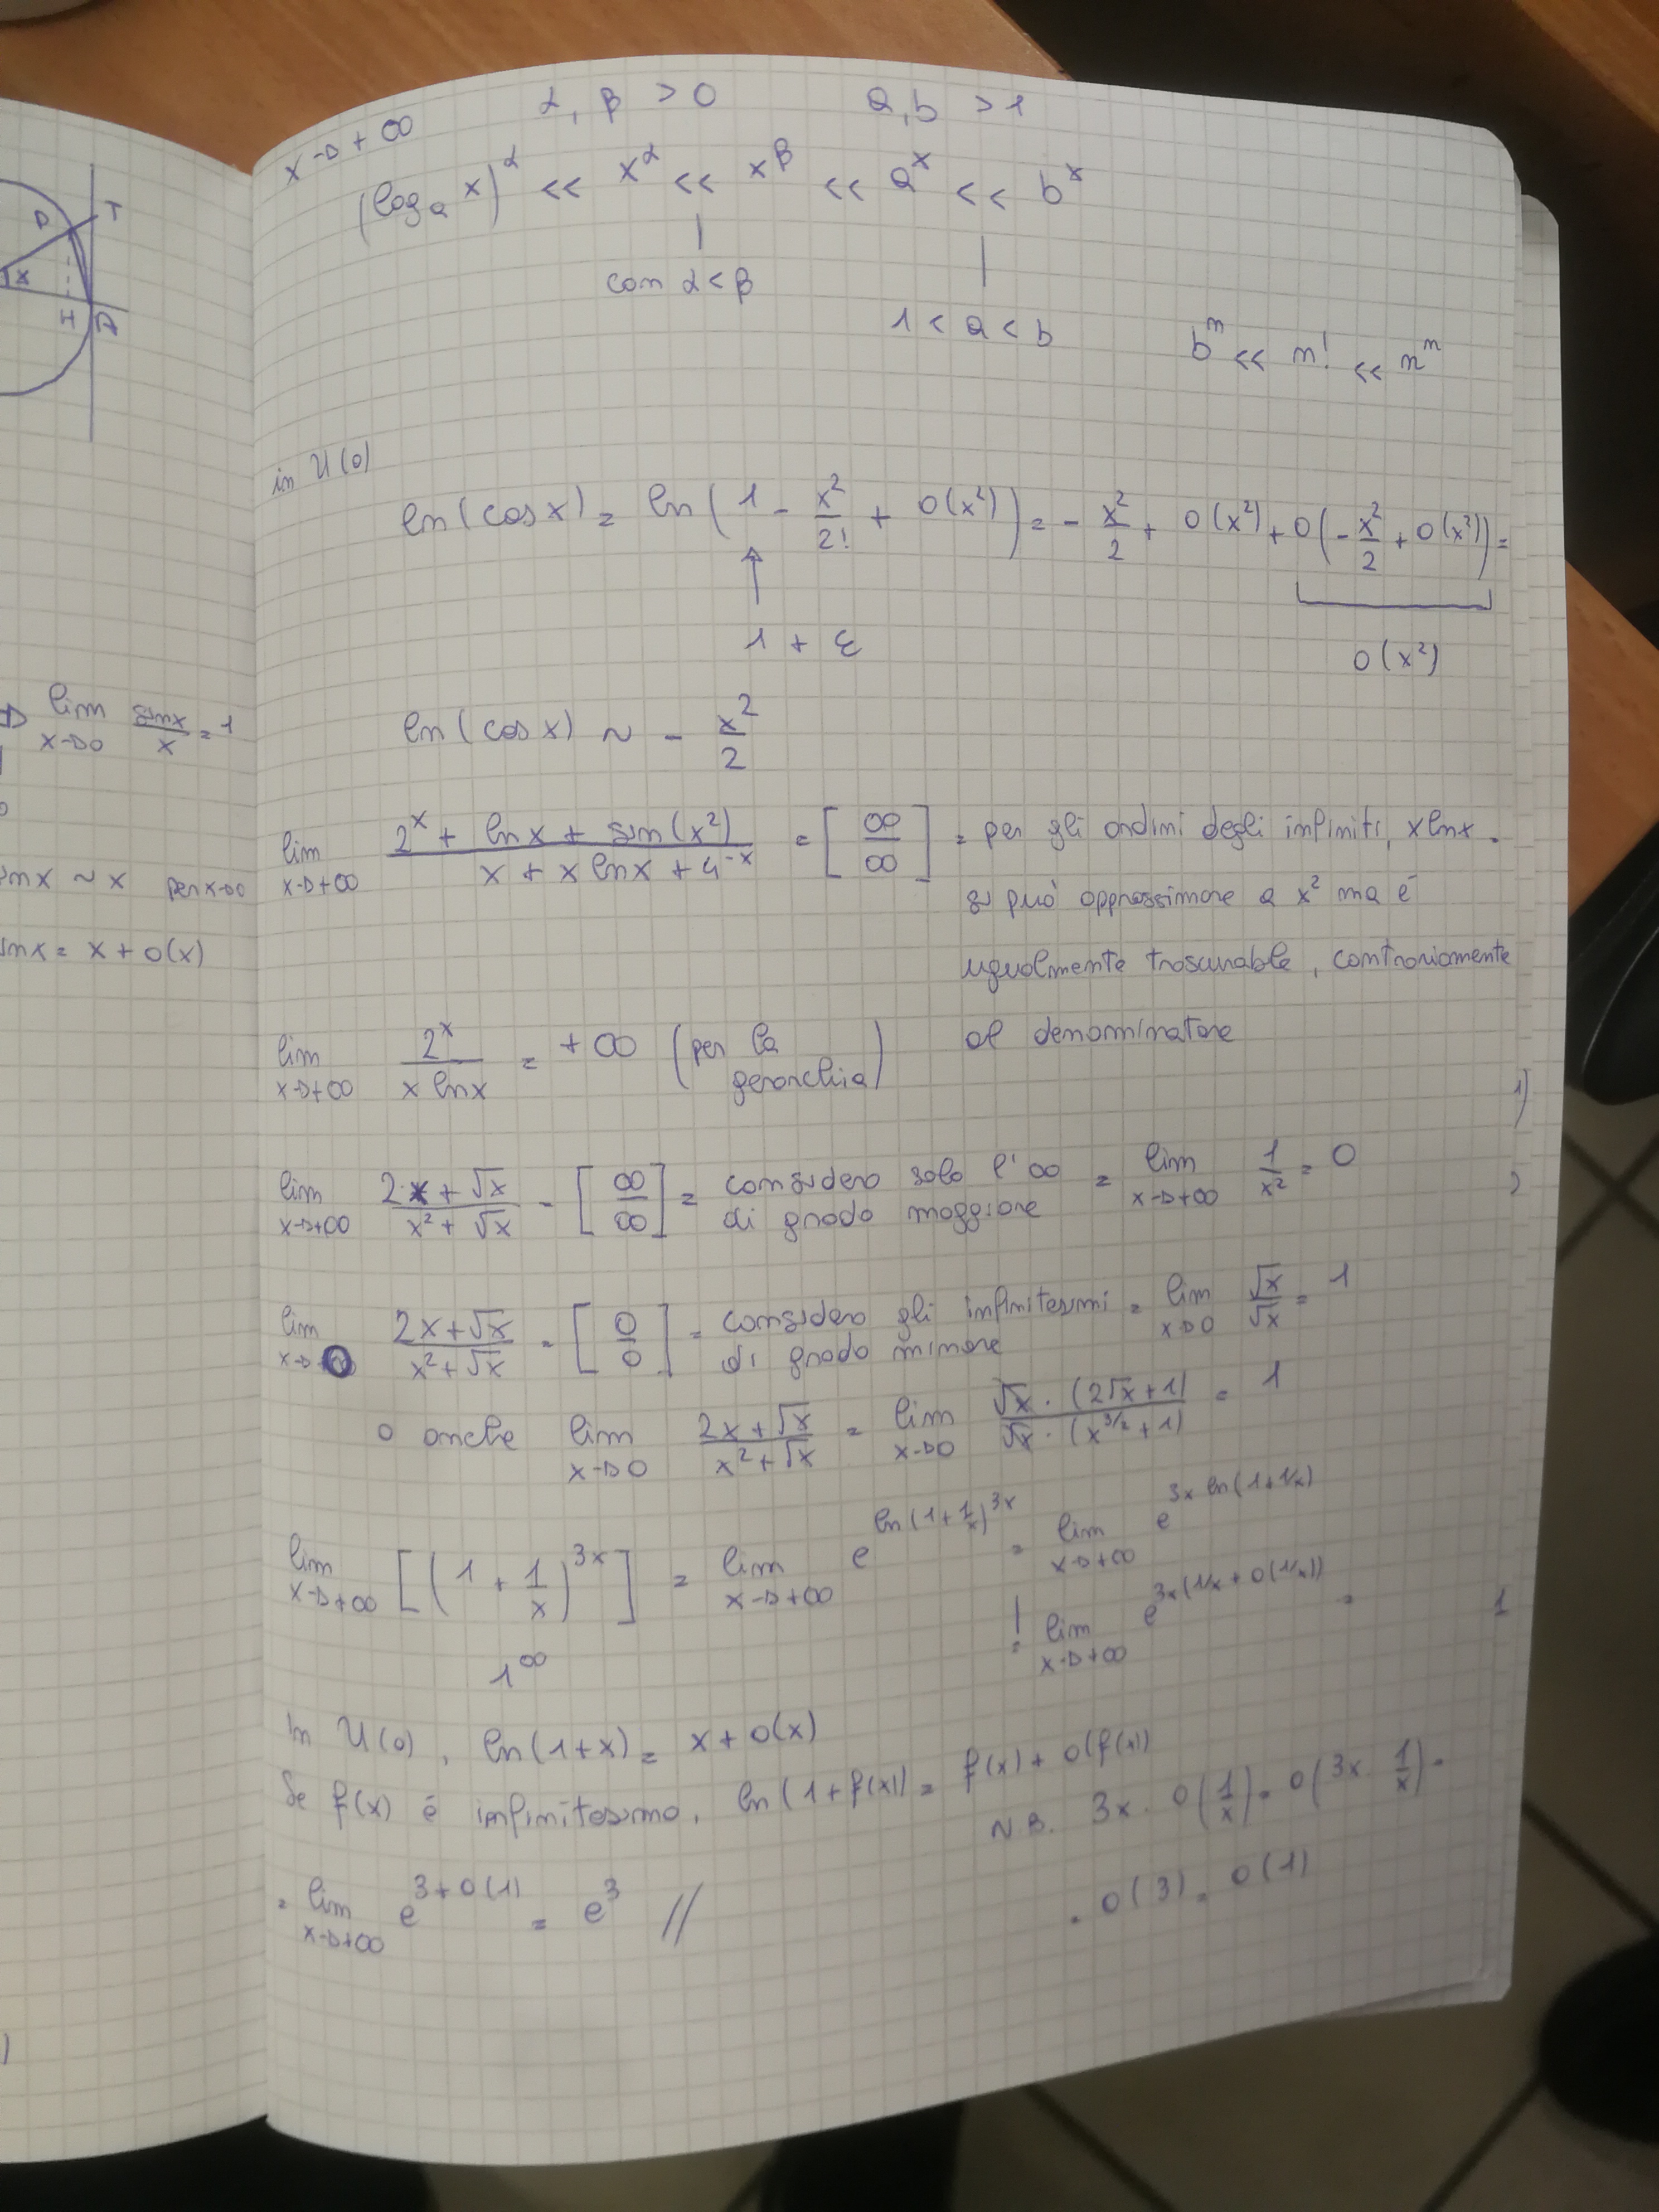 D T
x
H A
lim x→0 sinx/x = 1
sinx ~ x per x→0
sinx = x + o(x)
x→+∞ α, β > 0 a, b > 1
(log_a x)^α << x^α << x^β << a^x << b^x
con α < β
1 < a < b b^n << n! << n^n
in U(0)
ln(cosx) = ln(1 - x²/2! + o(x²)) = - x²/2 + o(x²) + o(- x²/2 + o(x²)) =
1 + ε o(x²)
ln(cosx) ~ - x²/2
lim x→+∞ (2^x + lnx + sin(x²))/(x + x lnx + 4^-x) = [∞/∞] = per gli ordini degli infiniti, xlnx
si può approssimare a x² ma è
ugualmente trascurabile, contrariamente
al denominatore
lim x→+∞ 2^x/(x lnx) = +∞ (per la gerarchia)
1)
lim x→+∞ (2x + √x)/(x² + √x) = [∞/∞] = considero solo l'∞ di grado maggiore = lim x→+∞ 1/x² = 0
lim x→0 (2x + √x)/(x² + √x) = [0/0] = considero gli infinitesimi di grado minore = lim x→0 √x/√x = 1
o anche lim x→0 (2x + √x)/(x² + √x) = lim x→0 (√x · (2√x + 1))/(√x · (x^3/2 + 1)) = 1
lim x→+∞ [(1 + 1/x)^3x] = lim x→+∞ e^ln(1 + 1/x)^3x = lim x→+∞ e^3x ln(1 + 1/x)
1^∞ ! = lim x→+∞ e^3x(1/x + o(1/x)) =
In U(0), ln(1+x) = x + o(x)
Se f(x) è infinitesimo, ln(1 + f(x)) = f(x) + o(f(x))
N.B. 3x · o(1/x) = o(3x · 1/x) =
= lim x→+∞ e^3+o(1) = e³ // = o(3) = o(1)